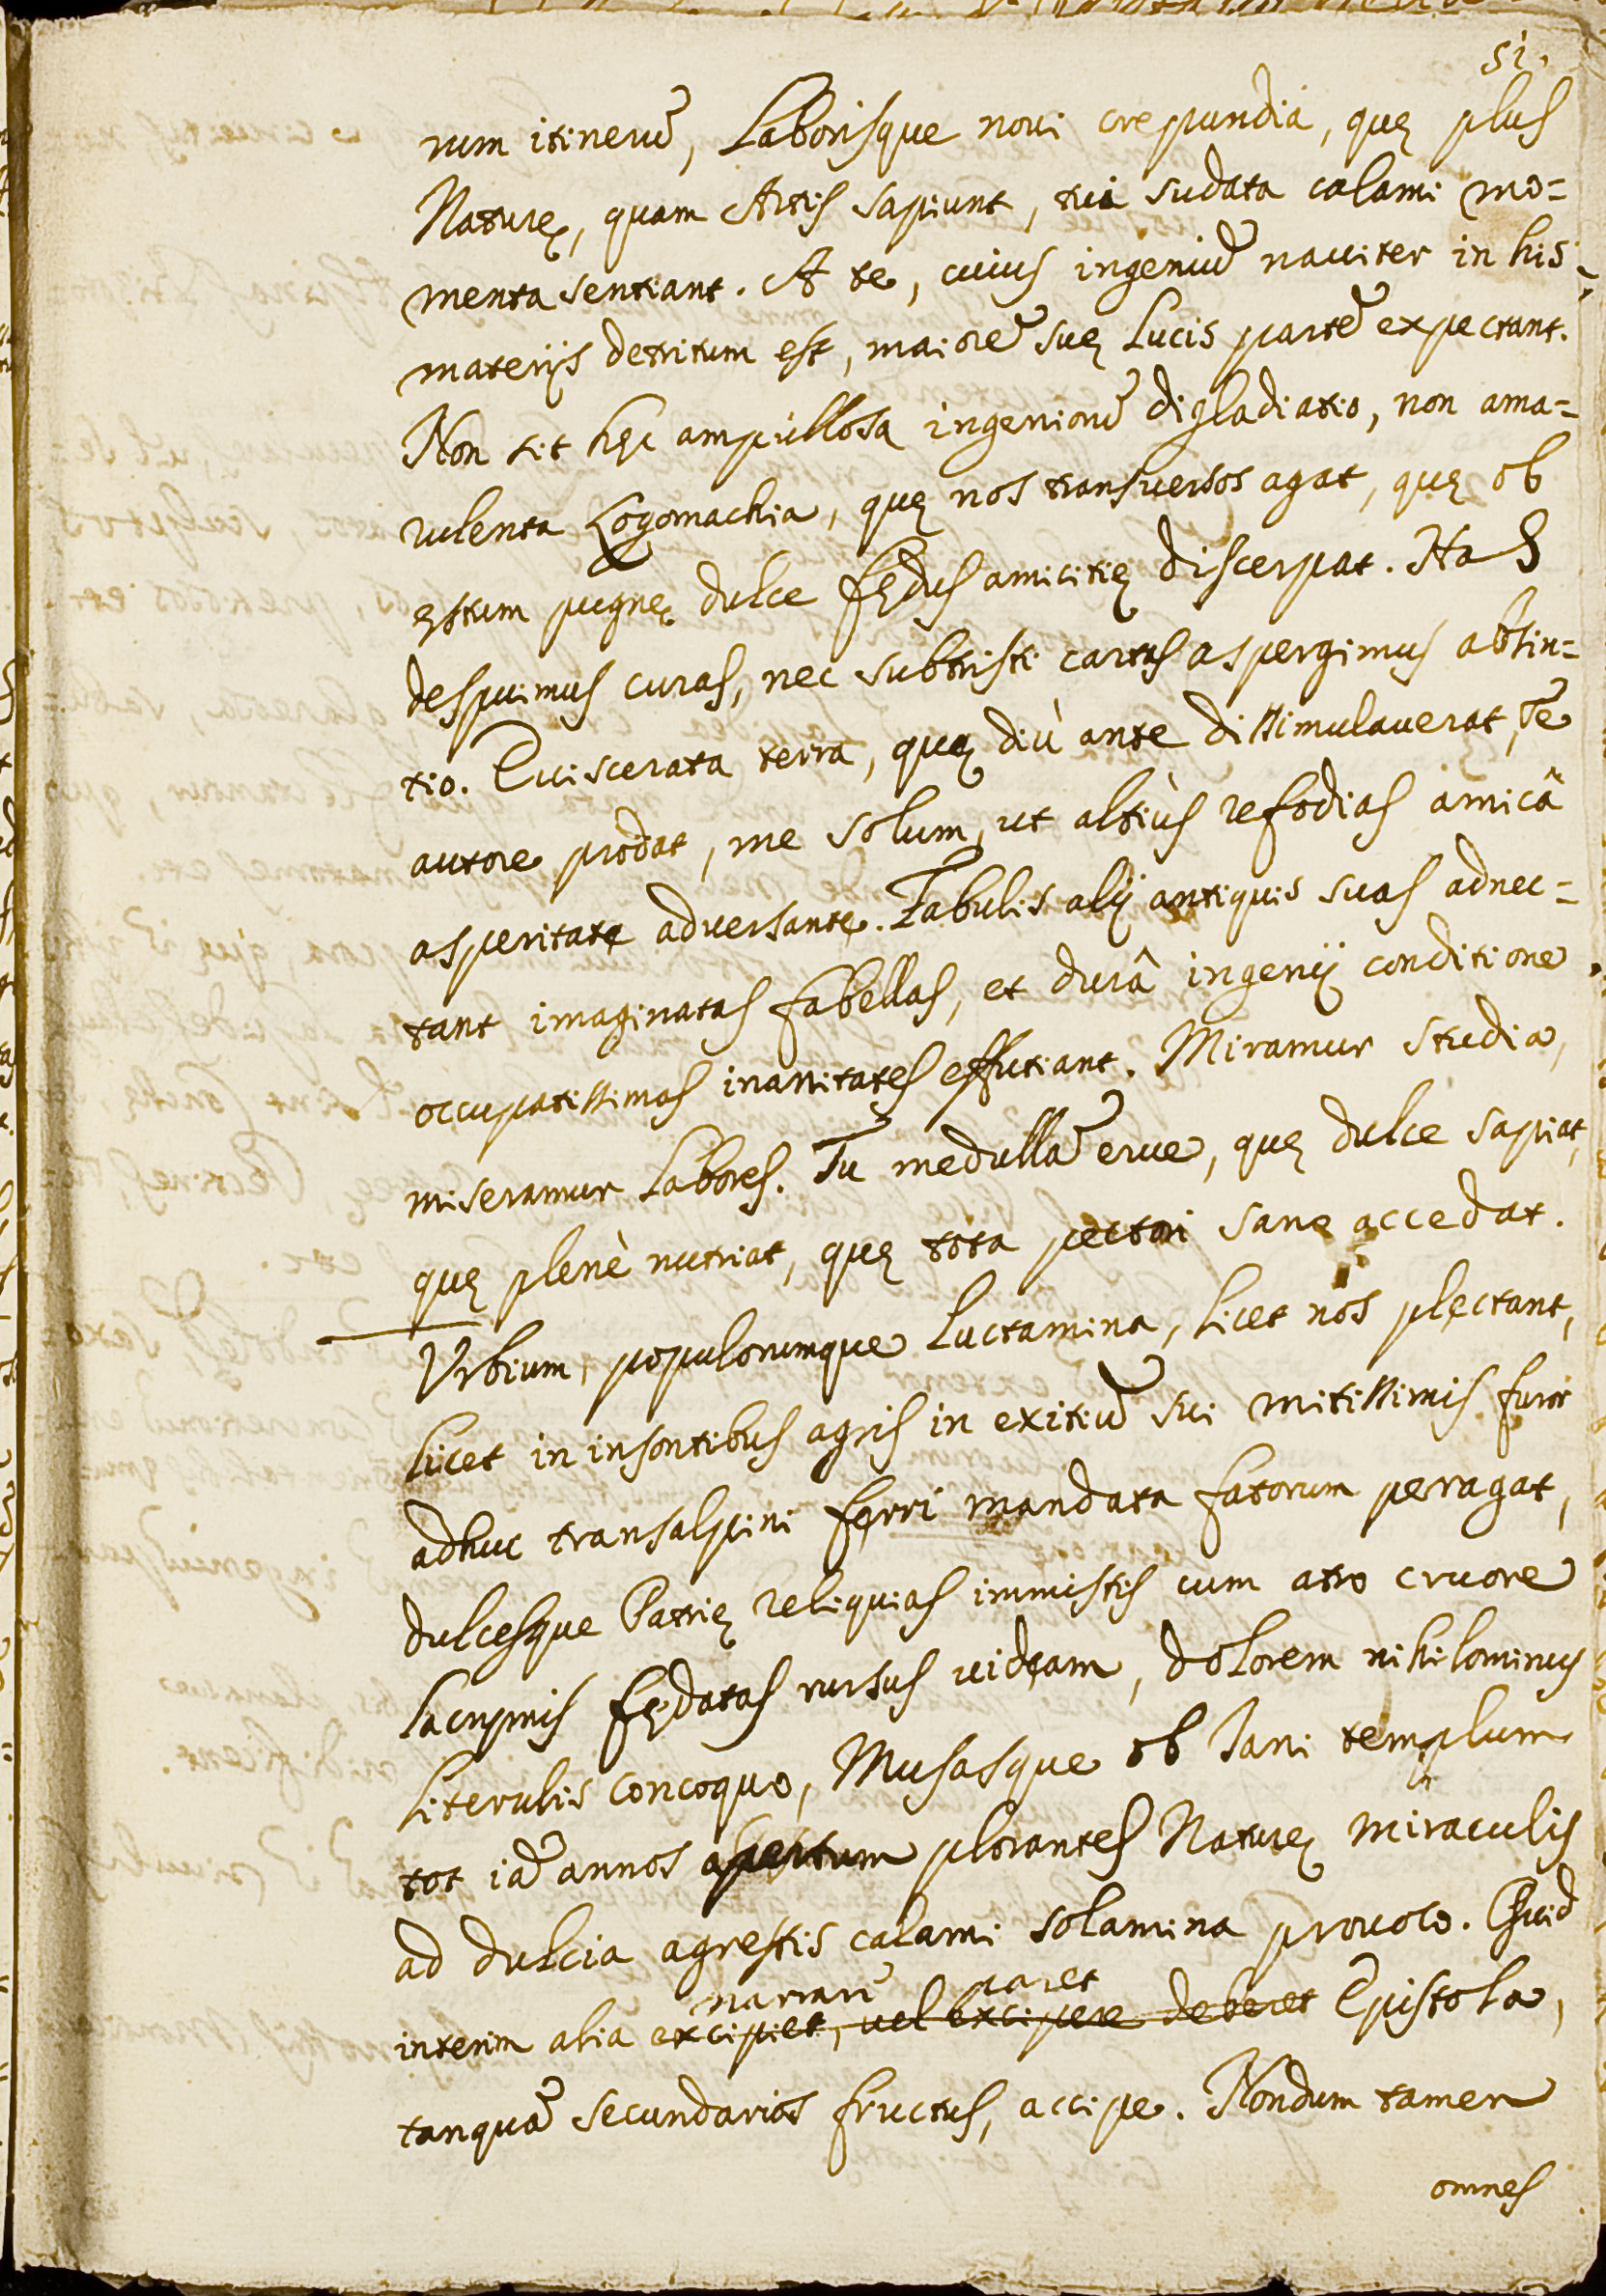 51.
rum itinerū, Laborisque noui crepundia, quę plus
Naturę, quam Artis sapiunt, tui sudata calami mo=
menta sentiant. A te, cuius ingeniū nauiter in his
materijs detritum est, maiorē suę Lucis partē expectant.
Non sit hęc ampullosa ingeniorū digladiatio, non ama=
rulenta Logomachia, quę nos transuersos agat, quę ob
ęstum pugnę dulce fędus amicitię discerpat. Has
despuimus curas, nec subtristi cartas aspergimus absin=
tio. Euiscerata terra, quę diù ante dissimulauerat, Te
autore prodat, me solum, ut altiùs refodias amicâ
asperitate aduersante. Fabulis alij antiquis suas adnec=
tant imaginatas fabellas, et durâ ingenij conditione
occupatissimas inanitates effutiant. Miramur studia,
miseramur Labores. Tu medullā erue, quę dulce sapiat,
quę plenè nutriat, quę tota pectori sane accedat.
Vrbium, populorumque Luctamina, licet nos plectant,
licet in insontibus agris in exitiū sui mitissimis furor
adhuc transalpini ferri mandata fatorum peragat,
dulcesque Patrię reliquias immistis cum atro cruore
lacrymis fędatas rursus uideam, dolorem nihilominus
Literulis concoquo, Musasque ob Iani templum
tot iā annos apertum plorantes Naturę miraculis
ad dulcia agrestis calami solamina prouoco. Quid
narrari paret
interim alia excipiet, uel excipere deberet Epistola,
tanquā secundarios fructus, accipe. Nondum tamen
omnes